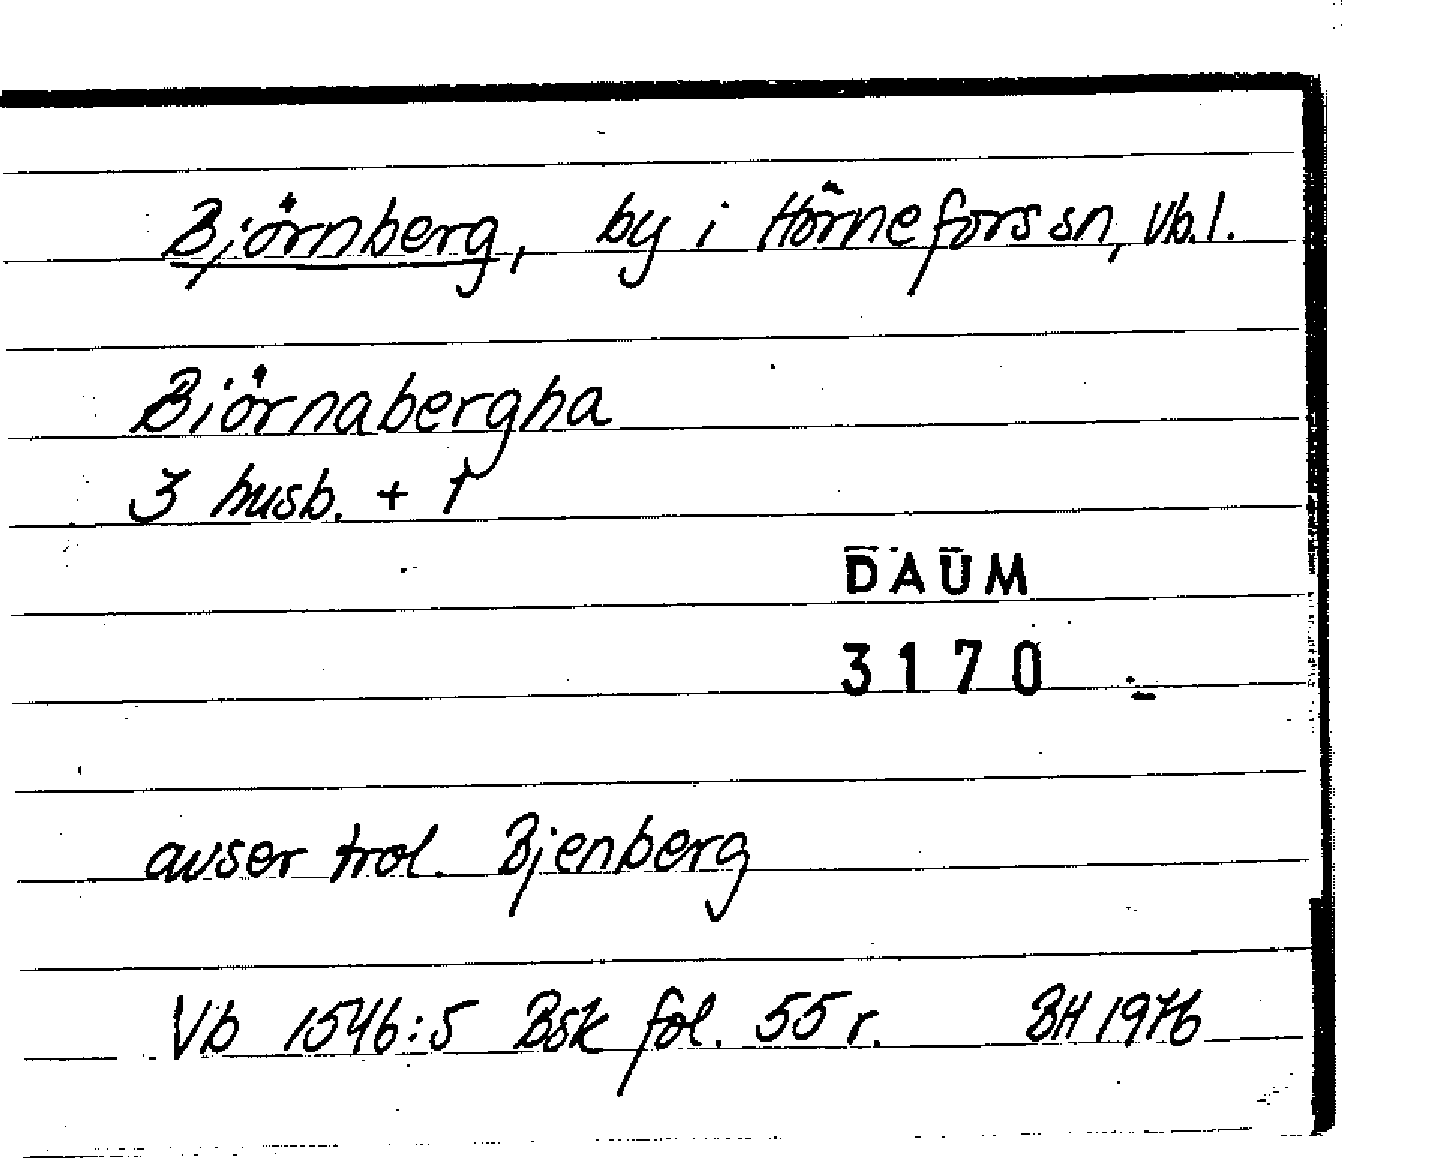 Björnberg, by i Hörnefors sn, Vb.l.
Biörnabergha
3 husb. + 1
DAUM
3170
avser trol. Bjenberg
Vb 1546:5 Bsk fol. 55 r. BH 1976